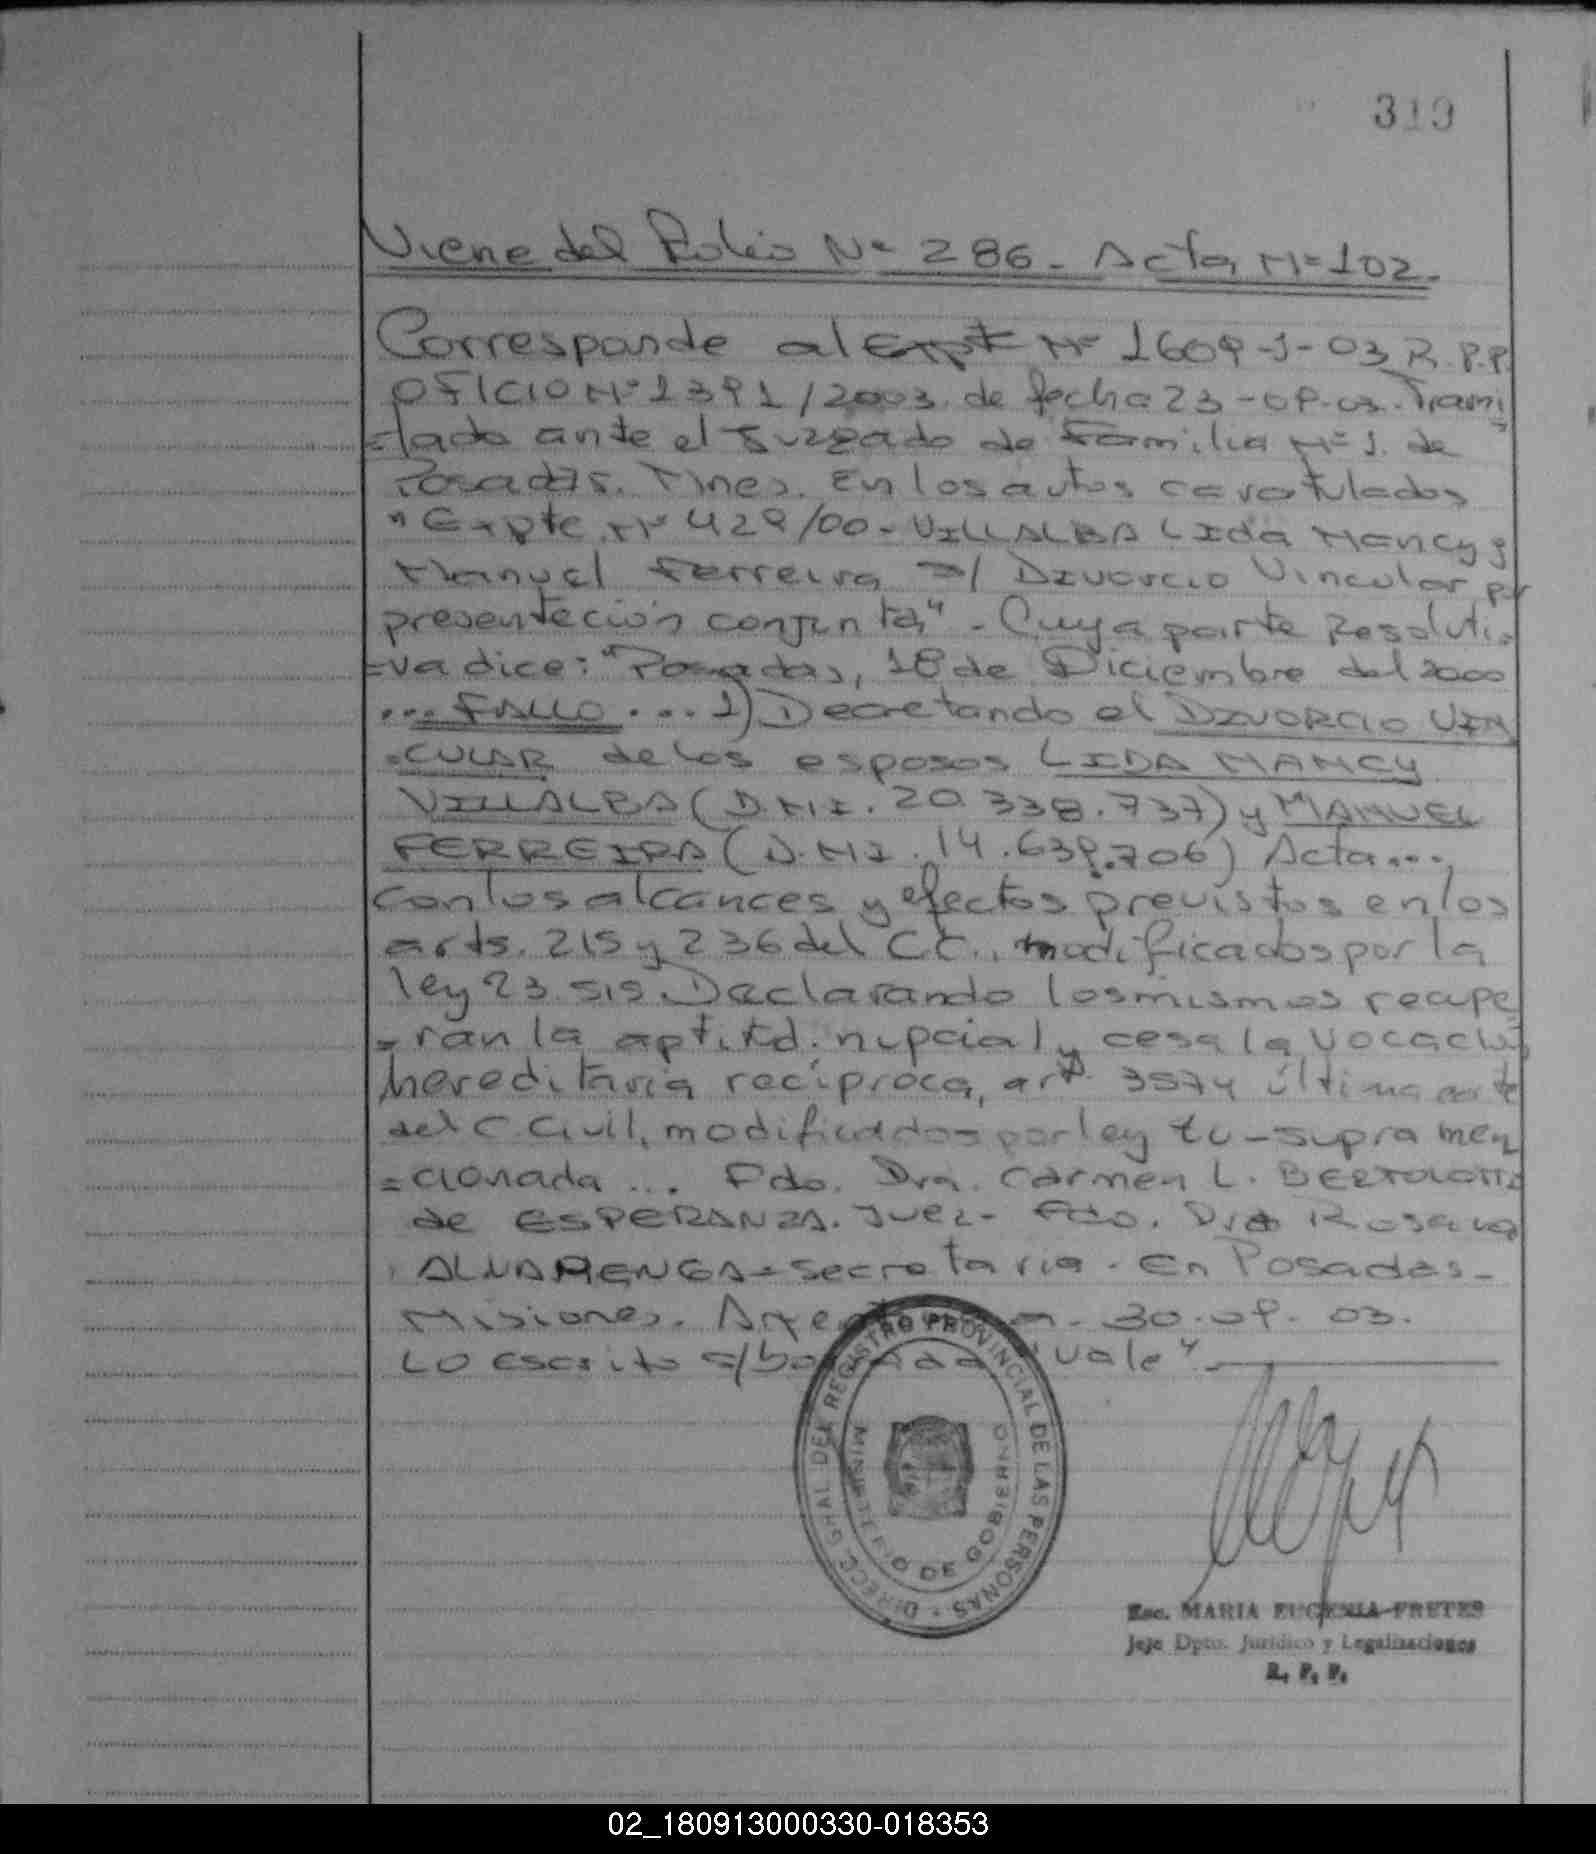 319
Viene del Folio Nº 286 - Acta Nº 102.
Corresponde al Expte Nº 1609-J-03 R.P.P.
OFICIO Nº 1391/2003. de fecha 23-09-03. Trami
=tado ante el Juzgado de Familia Nº 1. de
Posadas. Mnes. En los autos caratulados
"Expte. Nº 429/00 - VILLALBA LIda Nancy y
Manuel Ferreira s/ Divorcio Vincular por
presentación conjunta" - Cuya parte Resoluti
=va dice: "Posadas, 18 de Diciembre del 2000
... FALLO ... 1) Decretando el DIVORCIO VIN
=CULAR de los esposos LIDA NANCY
VILLALBA (D.N.I. 20.338.737) y MANUEL
FERREIRA (D.N.I. 14.639.706) Acta ...,
con los alcances y efectos previstos en los
arts. 215 y 236 del C.C., modificados por la
ley 23.515 Declarando los mismos recupe
=ran la aptitd. nupcial, cesa la vocación
hereditaria recíproca, art. 3574 última parte
del C. Civil, modificados por ley tu-supra men
=cionada ... Fdo. Dra. Carmen L. BERTOLOTTI
de ESPERANZA. Juez - Fdo. Dra Rosana
ALVARENGA = Secretaria. En Posadas -
Misiones. 30.09.03.
Lo escrito s/ "vale".
DIRECC. GRAL. DEL REGISTRO PROVINCIAL DE LAS PERSONAS
MINISTERIO DE GOBIERNO
Esc. MARIA EUGENIA FRETES
Jefe Dpto. Jurídico y Legalizaciones
R. P. P.
02_180913000330-018353